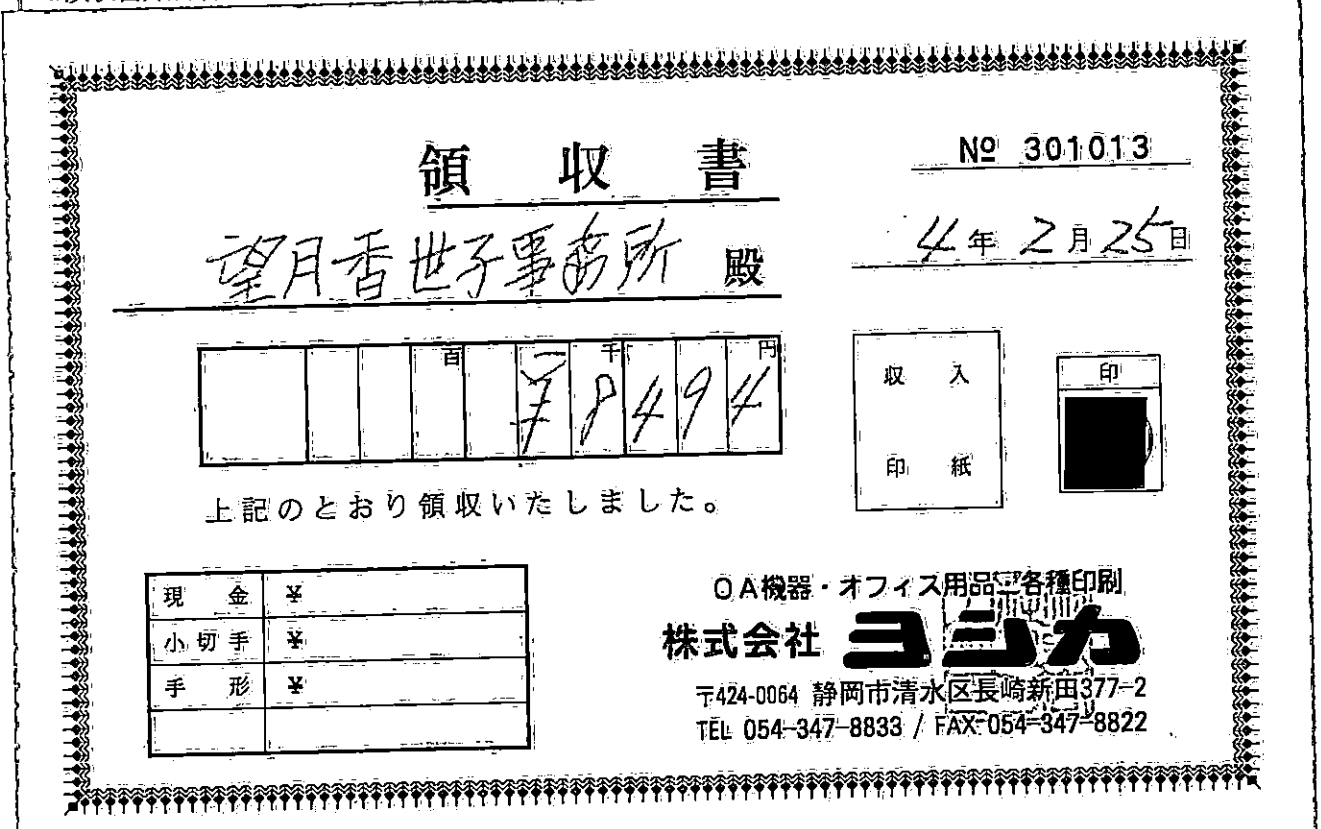 領 収 書
№ 301013
4年 2月 25日
望月香世子事務所 殿
百 千 円
¥8494
収 入
印 紙
印
上記のとおり領収いたしました。
現 金 ¥
小切手 ¥
手 形 ¥
OA機器・オフィス用品 各種印刷
株式会社 ヨシカ
〒424-0064 静岡市清水区長崎新田377-2
TEL 054-347-8833 / FAX 054-347-8822